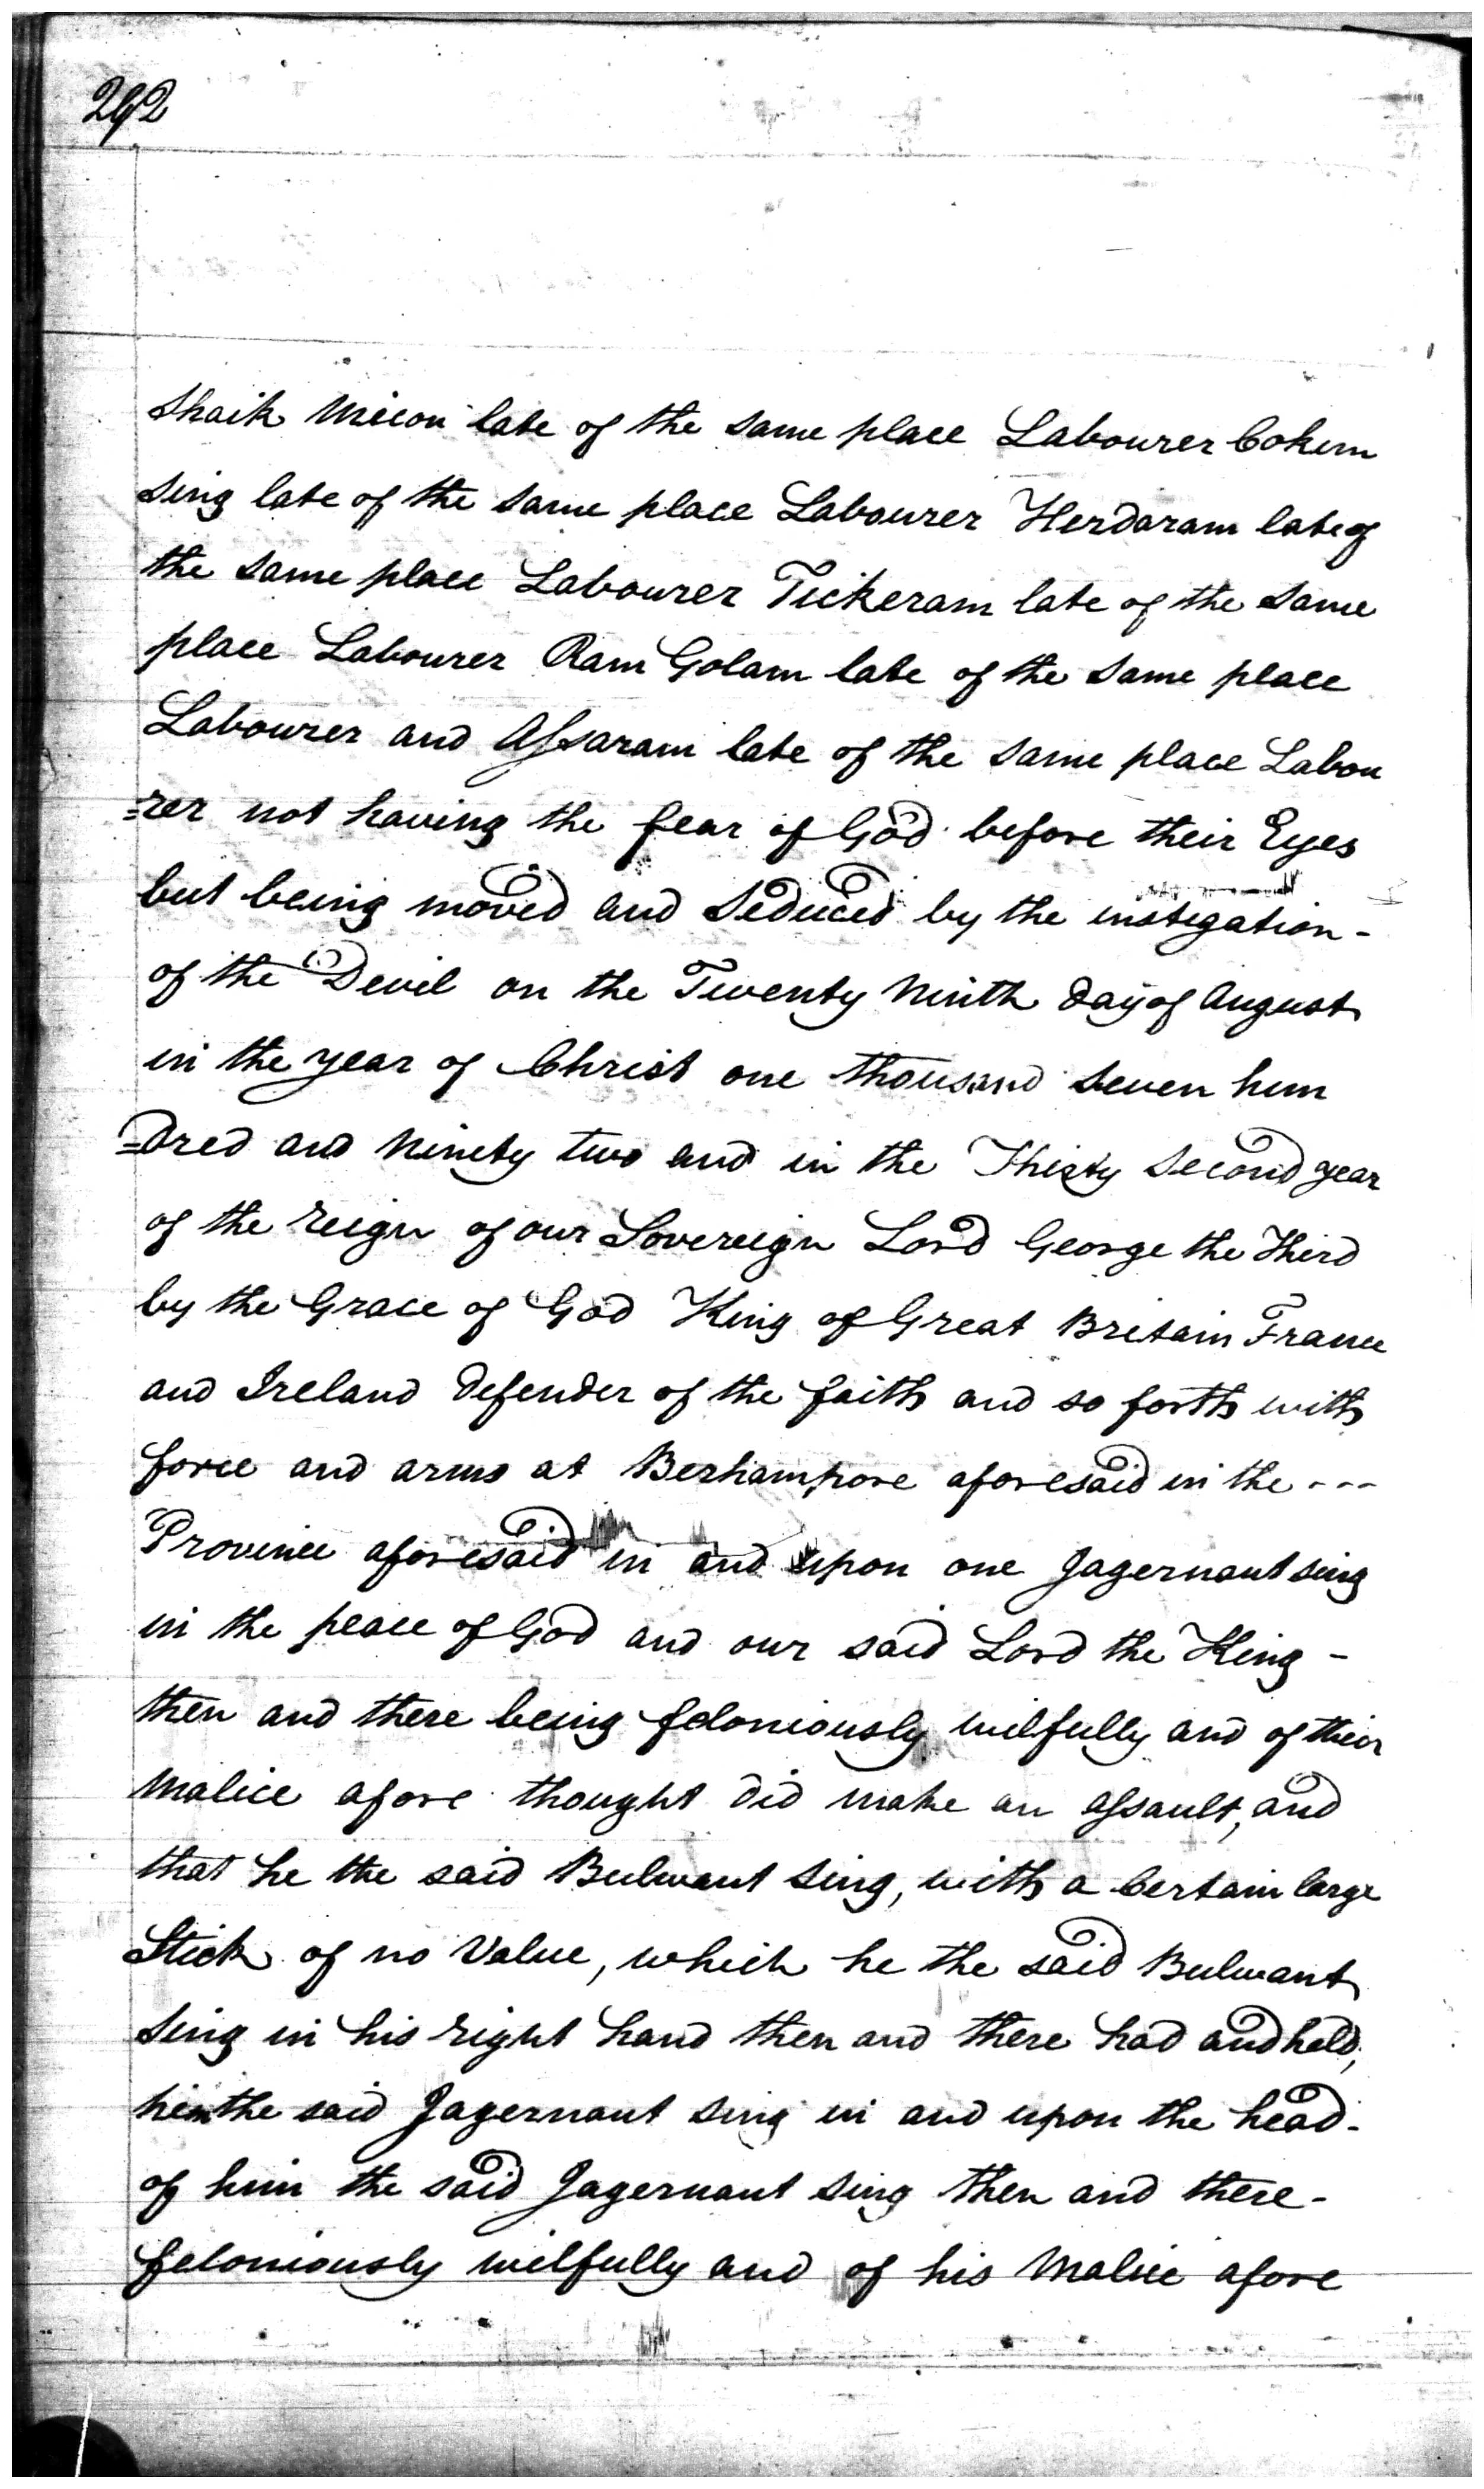 292
Shaik Mecon late of the same place Labourer Cokem
sing late of the same place Labourer Herdaram late of
the same place Labourer Tickeram late of the same
place Labourer Ram Golam late of the same place
Labourer and Assaram late of the same place Labou
=rer not having the fear of God before their Eyes
but being moved and Seduced by the instigation -
of the Devil on the Twenty Ninth day of August
in the year of Christ one thousand seven hun
=dred and Ninety two and in the Thirty Second year
of the reign of our Sovereign Lord George the Third
by the Grace of God King of Great Britain France
and Ireland defender of the faith and so forth with
force and arms at Berhampore aforesaid in the ---
Province aforesaid in and upon one Jagernaut sing
in the peace of God and our said Lord the King -
then and there being feloniously wilfully and of their
Malice afore thought did make an assault, and
that he the said Bulwant Sing, with a Certain large
Stick of no Value, which he the said Bulwant
Sing in his right hand then and there had and held,
him the said Jagernaut Sing in and upon the head -
of him the said Jagernaut Sing then and there -
feloniously wilfully and of his Malice afore